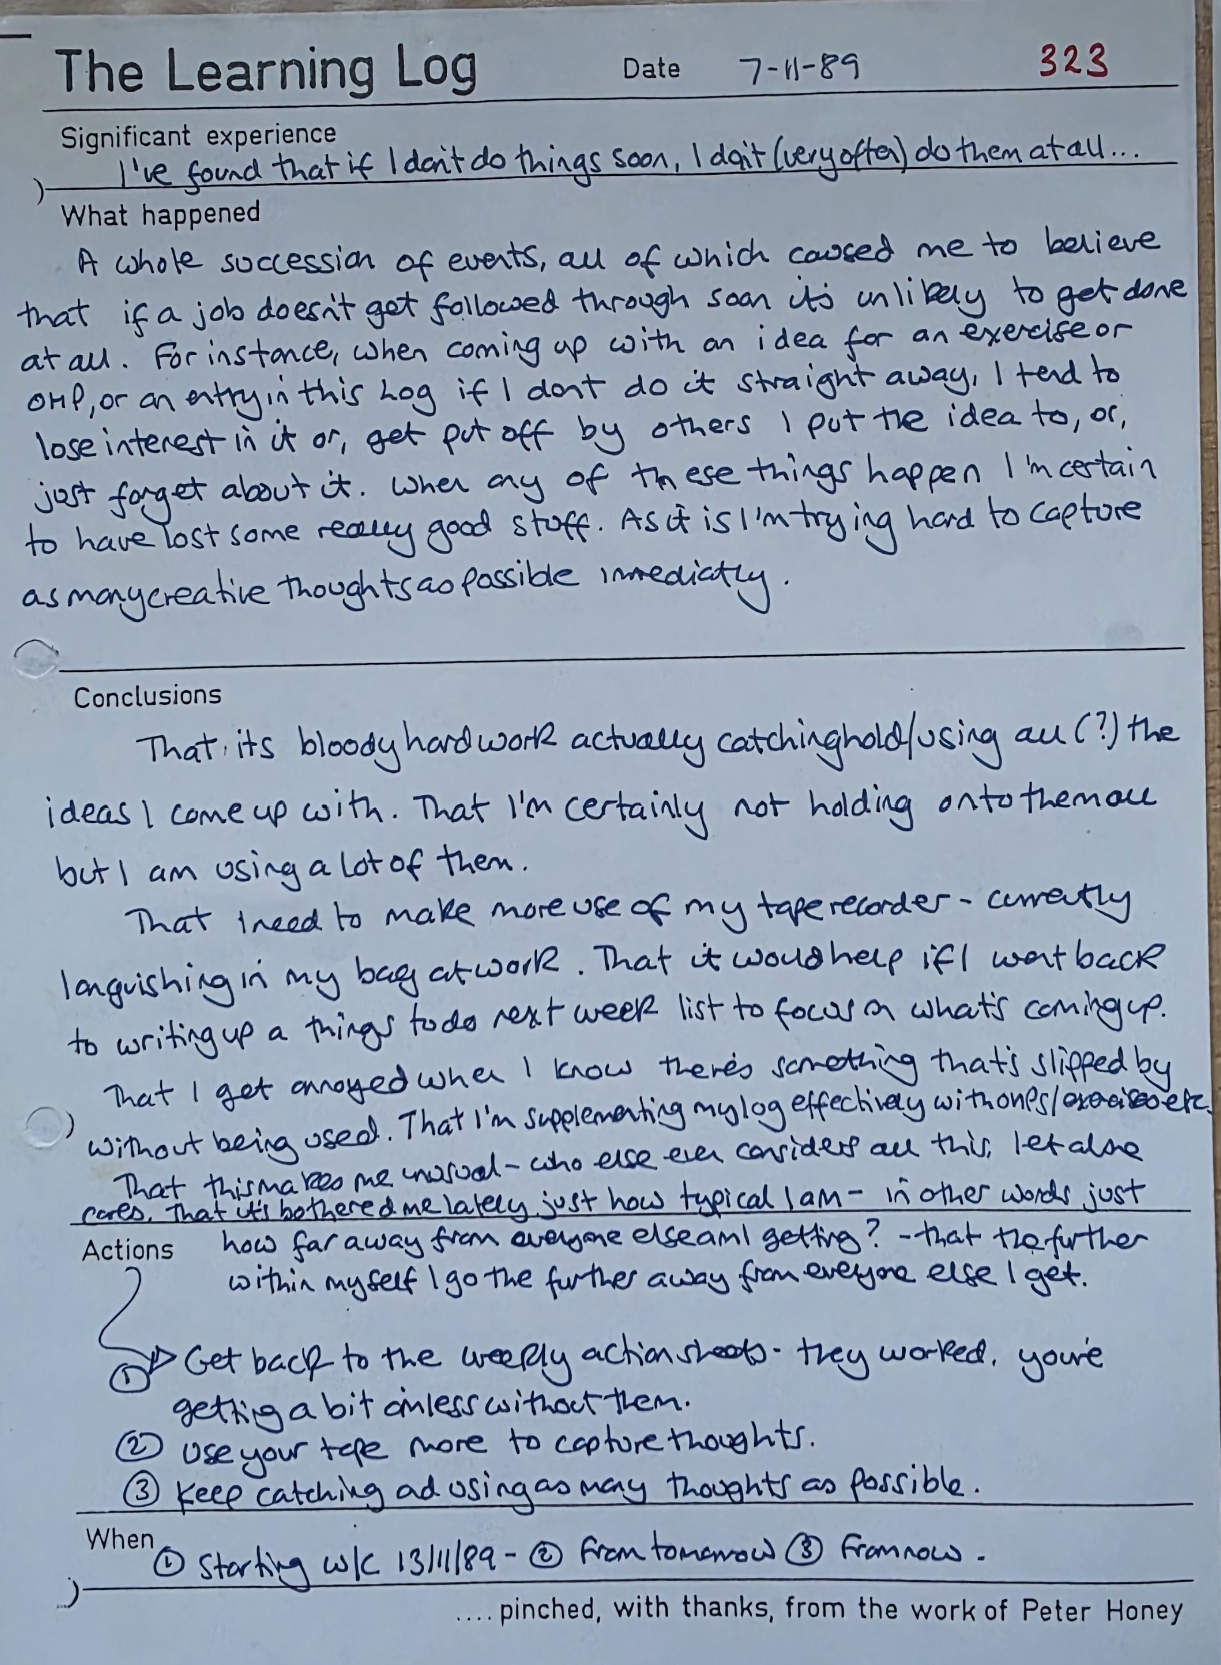 The Learning Log Date 7-11-89 323
Significant experience
I've found that if I don't do things soon, I don't (very often) do them at all...
What happened
A whole succession of events, all of which caused me to believe
that if a job doesn't get followed through soon it's unlikely to get done
at all. For instance, when coming up with an idea for an exercise or
OHP, or an entry in this Log if I dont do it straight away, I tend to
lose interest in it or, get put off by others I put the idea to, or,
just forget about it. When any of these things happen I'm certain
to have lost some really good stuff. As it is I'm trying hard to capture
as many creative thoughts as possible immediatly.
Conclusions
That, its bloody hard work actually catching hold/using all (?) the
ideas I come up with. That I'm certainly not holding onto them all
but I am using a lot of them.
That I need to make more use of my tape recorder - currently
languishing in my bag at work. That it would help if I went back
to writing up a things to do next week list to focus on what's coming up.
That I get annoyed when I know there's something that's slipped by
without being used. That I'm supplementing my log effectively with OHPs/exercises etc.
That this makes me unusual - who else ever considers all this, let alone
cares. That it's bothered me lately just how typical I am - in other words just
how far away from everyone else am I getting? - that the further
within myself I go the further away from everyone else I get.
Actions
① Get back to the weekly action sheets - they worked. you're
getting a bit aimless without them.
② Use your tape more to capture thoughts.
③ Keep catching and using as many thoughts as possible.
When ① Starting w/c 13/11/89 - ② From tomorrow ③ From now.
.... pinched, with thanks, from the work of Peter Honey